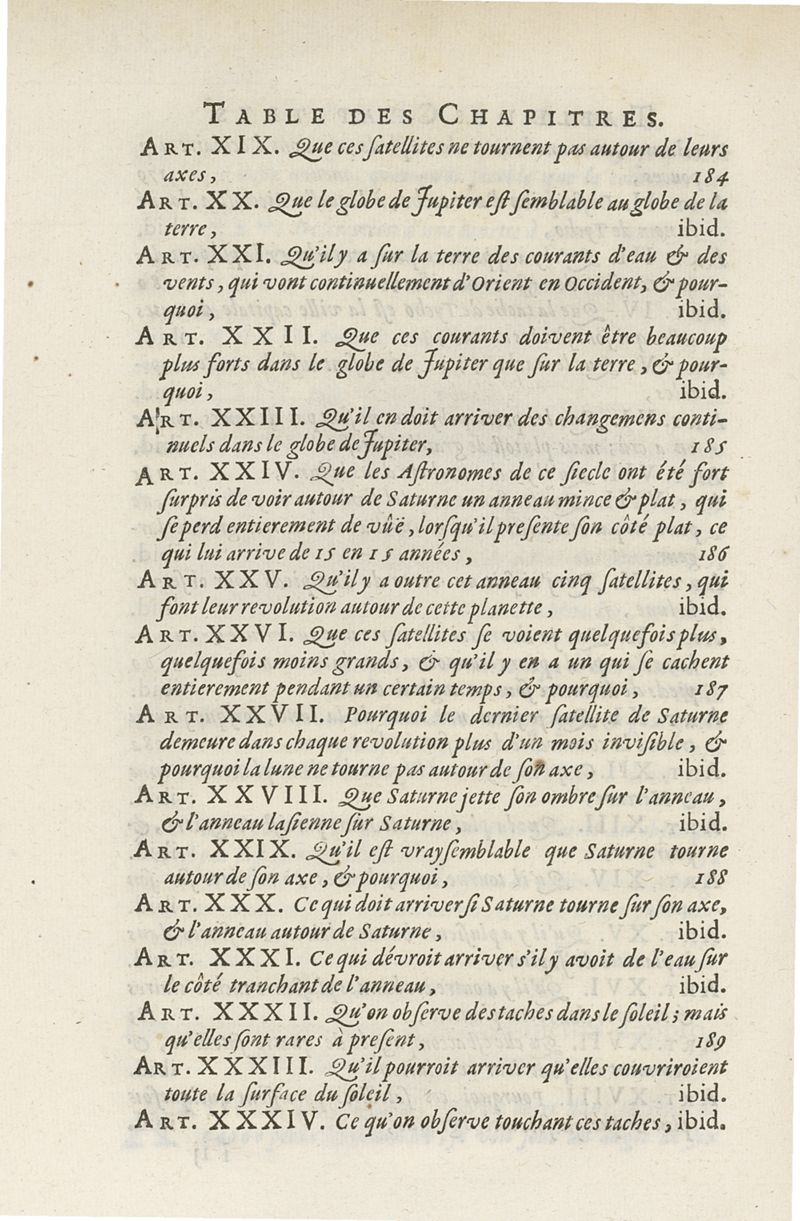 TABLE DES CHAPITRES.
ART. XIX. Que ces ſatellites ne tournent pas autour de leurs
axes, 184
ART. XX. Que le globe de Jupiter eſt ſemblable au globe de la
terre, ibid.
ART. XXI. Qu'il y a ſur la terre des courants d'eau & des
vents, qui vont continuellement d'Orient en Occident, & pour-
quoi, ibid.
ART. XXII. Que ces courants doivent être beaucoup
plus forts dans le globe de Jupiter que ſur la terre, & pour-
quoi, ibid.
ART. XXIII. Qu'il en doit arriver des changemens conti-
nuels dans le globe de Jupiter, 185
ART. XXIV. Que les Aſtronomes de ce ſiecle ont été fort
ſurpris de voir autour de Saturne un anneau mince & plat, qui
ſe perd entierement de vûë, lorſqu'il preſente ſon côté plat, ce
qui lui arrive de 15 en 15 années, 186
ART. XXV. Qu'il y a outre cet anneau cinq ſatellites, qui
font leur revolution autour de cette planette, ibid.
ART. XXVI. Que ces ſatellites ſe voient quelquefois plus,
quelquefois moins grands, & qu'il y en a un qui ſe cachent
entierement pendant un certain temps, & pourquoi, 187
ART. XXVII. Pourquoi le dernier ſatellite de Saturne
demeure dans chaque revolution plus d'un mois inviſible, &
pourquoi la lune ne tourne pas autour de ſon axe, ibid.
ART. XXVIII. Que Saturne jette ſon ombre ſur l'anneau,
& l'anneau la ſienne ſur Saturne, ibid.
ART. XXIX. Qu'il eſt vrayſemblable que Saturne tourne
autour de ſon axe, & pourquoi, 188
ART. XXX. Ce qui doit arriver ſi Saturne tourne ſur ſon axe,
& l'anneau autour de Saturne, ibid.
ART. XXXI. Ce qui dévroit arriver s'il y avoit de l'eau ſur
le côté tranchant de l'anneau, ibid.
ART. XXXII. Qu'on obſerve des taches dans le ſoleil; mais
qu'elles ſont rares à preſent, 189
ART. XXXIII. Qu'il pourroit arriver qu'elles couvriroient
toute la ſurface du ſoleil, ibid.
ART. XXXIV. Ce qu'on obſerve touchant ces taches, ibid.